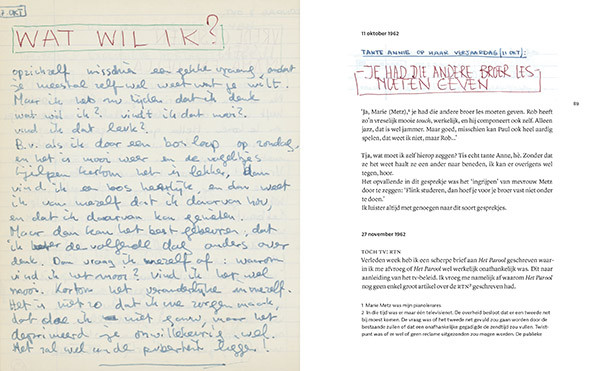 7 OKT
WAT WIL IK?
opzichzelf misschien een gekke vraag, omdat
je meestal zelf wel weet wat je wilt.
Maar ik heb nu tijden dat ik denk
wat wil ik? vindt ik dat mooi?
vind ik dat leuk?
B.v. als ik door een bos loop op zondag,
en het is mooi weer en de vogeltjes
tjilpen kortom het is lekker, dan
vind ik een bos heerlijk, en dan weet
ik van mezelf dat ik daarvan hou,
en dat ik daarvan kan genieten.
Maar dan kan het best gebeuren, dat
ik de volgende dag anders over
denk. Dan vraag ik mezelf af: waarom
vind ik het mooi? Vind ik het wel
mooi. Kortom het veranderlijke in mezelf.
Het is niet zo dat ik me zorgen maak,
dat doe ik niet gauw, maar het
deprimeerd je onwillekeurig wel.
Het zal wel in de puberteit liggen!
11 oktober 1962
TANTE ANNIE OP HAAR VERJAARDAG (11 OKT):
-JE HAD DIE ANDERE BROER LES
MOETEN GEVEN
'Ja, Marie (Metz),¹ je had die andere broer les moeten geven. Rob heeft
zo'n vreselijk mooie touch, werkelijk, en hij componeert ook zelf. Alleen
jazz, dat is wel jammer. Maar goed, misschien kan Paul ook heel aardig
spelen, dat weet ik niet, maar Rob...'
Tja, wat moet ik zelf hierop zeggen? Tis echt tante Anne, hè. Zonder dat
ze het weet haalt ze een ander naar beneden, ik kan er overigens wel
tegen, hoor.
Het opvallende in dit gesprek was het 'ingrijpen' van mevrouw Metz
door te zeggen: 'Flink studeren, dan hoef je voor je broer vust niet onder
te doen.'
Ik luister altijd met genoegen naar dit soort gesprekjes.
27 november 1962
TOCH TV: RTN
Verleden week heb ik een scherpe brief aan Het Parool geschreven waar-
in ik me afvroeg of Het Parool wel werkelijk onafhankelijk was. Dit naar
aanleiding van het tv-beleid. Ik vroeg me namelijk af waarom Het Parool
nog geen enkel groot artikel over de RTN² geschreven had.
1 Marie Metz was mijn pianolerares
2 In die tijd was er maar één televisienet. De overheid besloot dat er een tweede net
bij moest komen. De vraag was of het tweede net gevuld zou gaan worden door de
bestaande zuilen of dat een onafhankelijke gegadigde de zendtijd zou vullen. Twist-
punt was of er wel of geen reclame uitgezonden zou mogen worden. De publieke